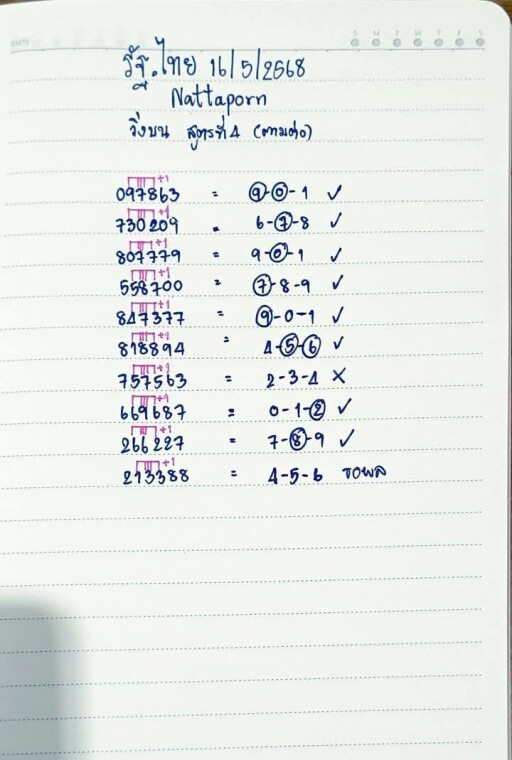 DATE S M T W T F S
รัฐ.ไทย 16/5/2568
Nattaporn
วิ่งบน สูตรที่ 4 (ตามต่อ)
+1
097863 = 9-0-1 ✓
+1
730209 = 6-7-8 ✓
+1
807779 = 9-0-1 ✓
+1
558700 = 7-8-9 ✓
+1
847377 = 9-0-1 ✓
+1
818894 = 4-5-6 ✓
+1
757563 = 2-3-4 ✗
+1
669687 = 0-1-2 ✓
+1
266227 = 7-8-9 ✓
+1
213388 = 4-5-6 ขอผล